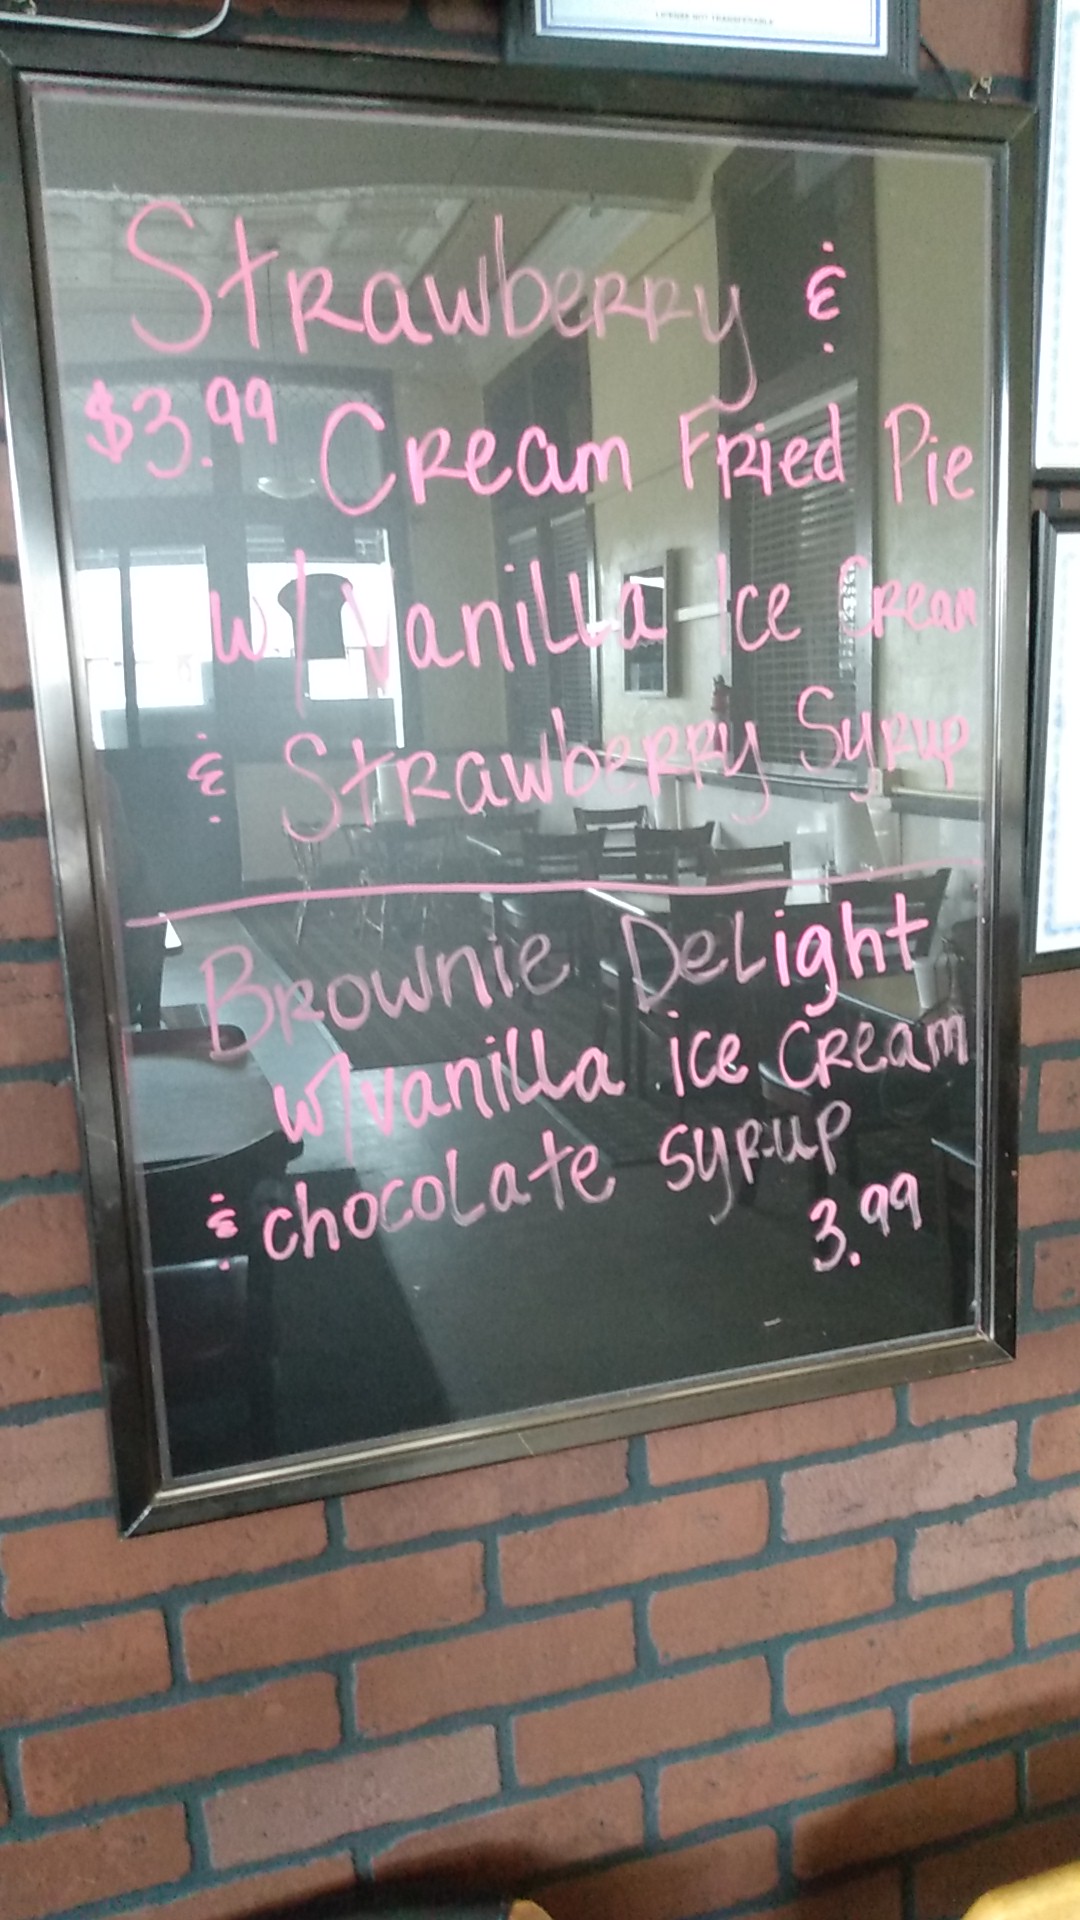 LICENSE NOT TRANSFERABLE
Strawberry &
$3.99 Cream Fried Pie
w/ Vanilla Ice Cream
& Strawberry Syrup
Brownie Delight
w/ vanilla ice cream
& chocolate syrup
3.99